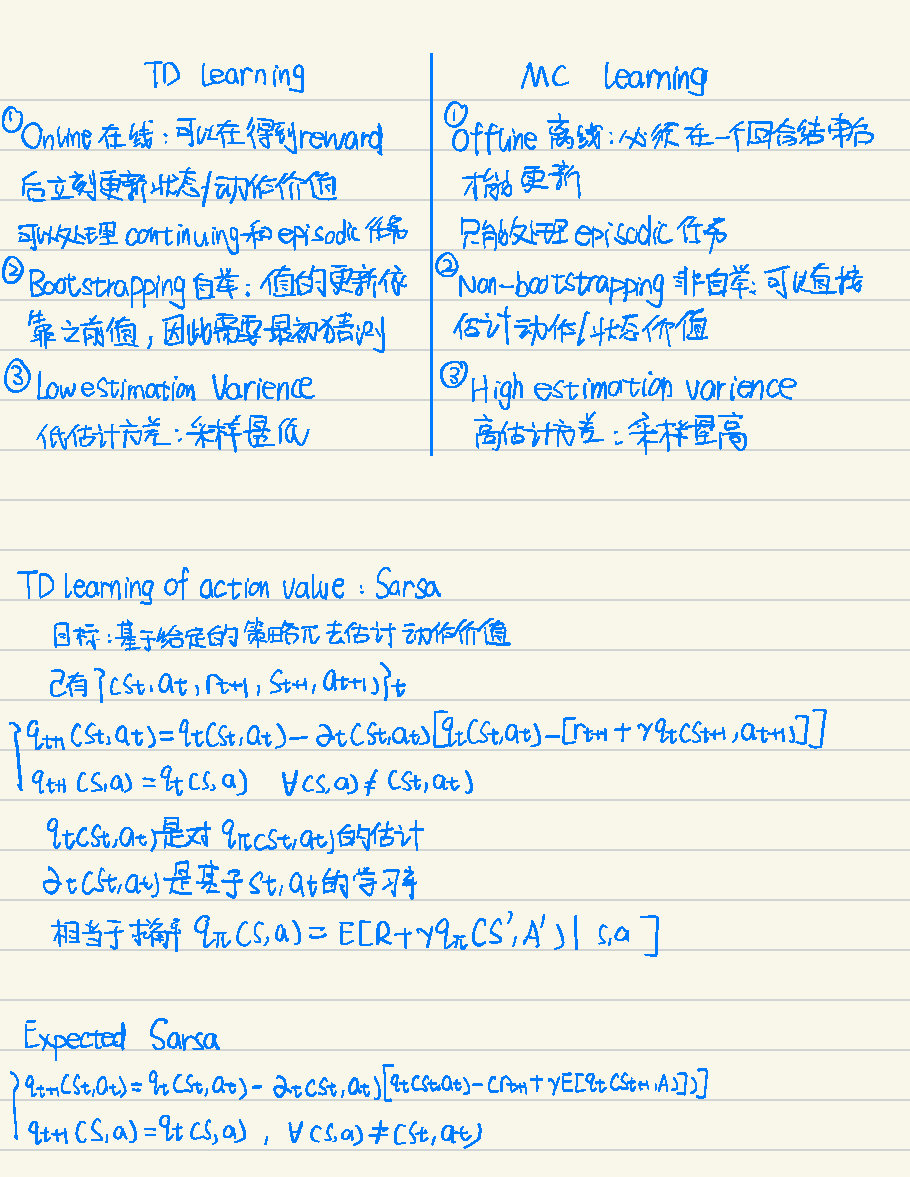 TD Learning
① Online 在线：可以在得到reward
后立刻更新状态/动作价值
可以处理 continuing 和 episodic 任务
② Bootstrapping 自举：值的更新依
靠之前值，因此需要最初猜测
③ Low estimation Varience
低估计方差：采样量低
MC Learning
① Offline 离线：必须在一个回合结束后
才能更新
只能处理 episodic 任务
② Non-bootstrapping 非自举：可以直接
估计动作/状态价值
③ High estimation varience
高估计方差：采样量高
TD learning of action value : Sarsa
目标：基于给定的策略π去估计动作价值
已有{(st, at, rt+1, st+1, at+1)}t
qt+1(st, at) = qt(st, at) - αt(st, at)[qt(st, at) - [rt+1 + γqt(st+1, at+1)]]
qt+1(s, a) = qt(s, a) ∀(s, a) ≠ (st, at)
qt(st, at)是对 qπ(st, at)的估计
αt(st, at)是基于st, at的学习率
相当于求解 qπ(s, a) = E[R + γqπ(S', A') | s, a]
Expected Sarsa
qt+1(st, at) = qt(st, at) - αt(st, at)[qt(st, at) - (rt+1 + γE[qt(st+1, A)])]
qt+1(s, a) = qt(s, a), ∀(s, a) ≠ (st, at)